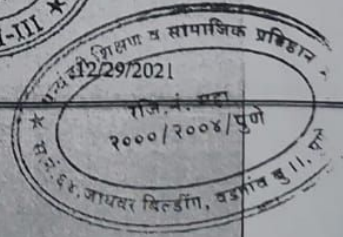 -III ★
शिक्षण व सामाजिक प्रतिष्ठान
12/29/2021
रजि. नं. महा
२०००/२००४/पुणे
★ स.नं. ६४, जायवर बिल्डींग, वडगांव बु ॥,